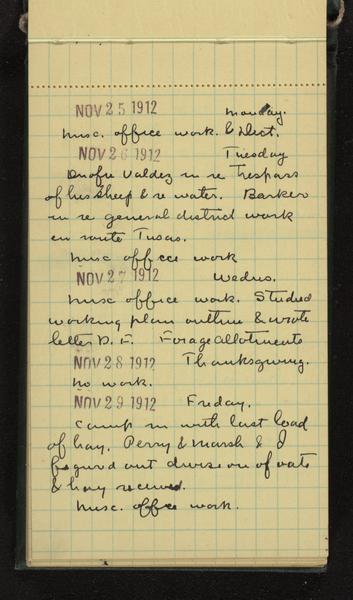 NOV 25 1912 Monday.
Misc. office work. & Dict.
NOV 26 1912 Tuesday
Onofre Valdez in re Trespass
of his sheep & re water. Barker
in re general district work
en route Tusas.
Misc office work
NOV 27 1912 Wednes.
Misc office work. Studied
working plan outline & wrote
letter D. F. Forage allotments
NOV 28 1912 Thanksgiving.
No work.
NOV 29 1912 Friday.
Camp in with last load
of hay. Perry & Marsh & I
figured out division of oats
& hay received.
Misc. office work.